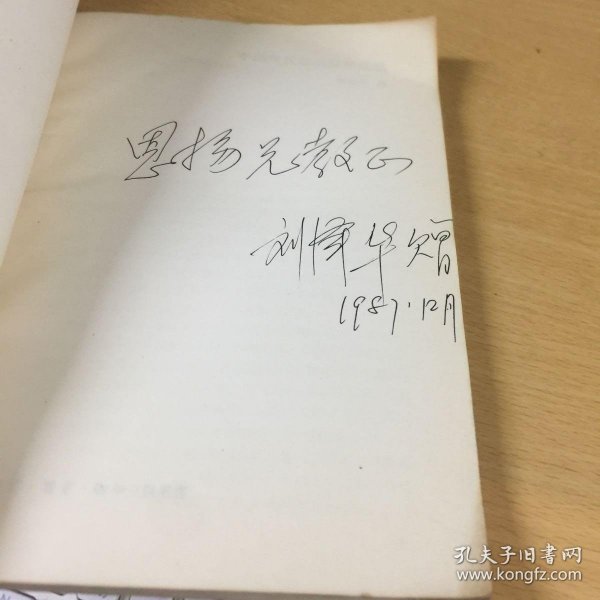 恩扬兄教正
刘泽华赠
1987.12月
孔夫子旧书网
www.kongfz.com